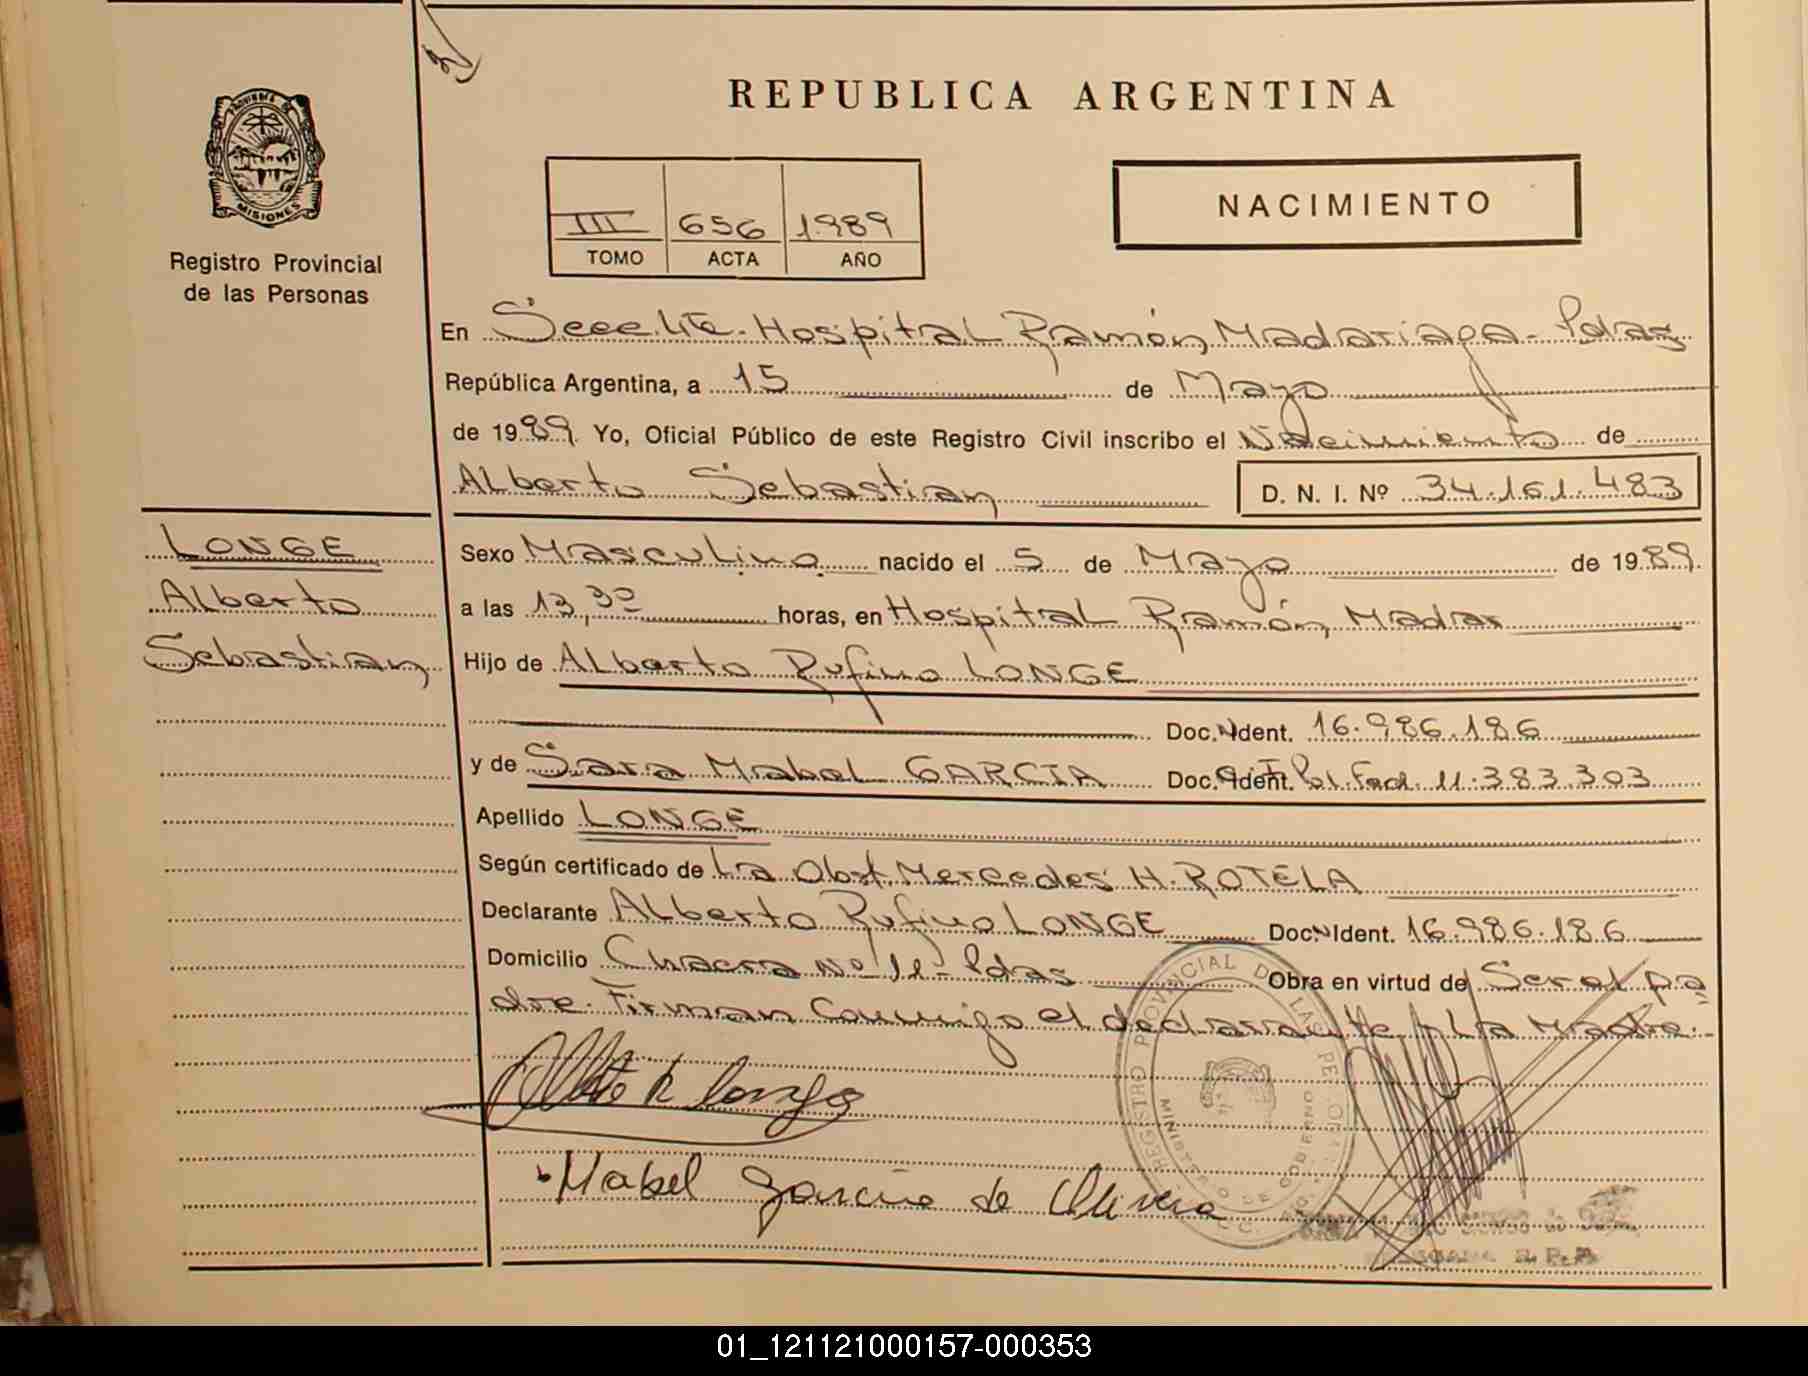 REPUBLICA ARGENTINA
PROVINCIA DE
MISIONES
Registro Provincial
de las Personas
III 656 1989
TOMO ACTA AÑO
NACIMIENTO
En Secc. 4ta. Hospital Ramón Madariaga - Pdas
República Argentina, a 15 de Mayo
de 1989. Yo, Oficial Público de este Registro Civil inscribo el Nacimiento de
Alberto Sebastian D. N. I. Nº 34.161.483
LONGE
Alberto
Sebastian
Sexo Masculino nacido el 5 de Mayo de 1989.
a las 13,30 horas, en Hospital Ramón Madar
Hijo de Alberto Rufino LONGE
Doc. N Ident. 16.986.186
y de Sara Mabel GARCIA Doc. Ident. Pol. Fed. 11.383.303
Apellido LONGE
Según certificado de La Obst. Mercedes H. ROTELA
Declarante Alberto Rufino LONGE Doc. N Ident. 16.986.186
Domicilio Chacra Nº 11 - Pdas Obra en virtud de Ser el pa
dre. Firman Conmigo el declarante y La Madre.
Mabel Garcia de Olivera
REGISTRO PROVINCIAL DE LAS PERSONAS
MINISTERIO DE GOBIERNO
01_121121000157-000353